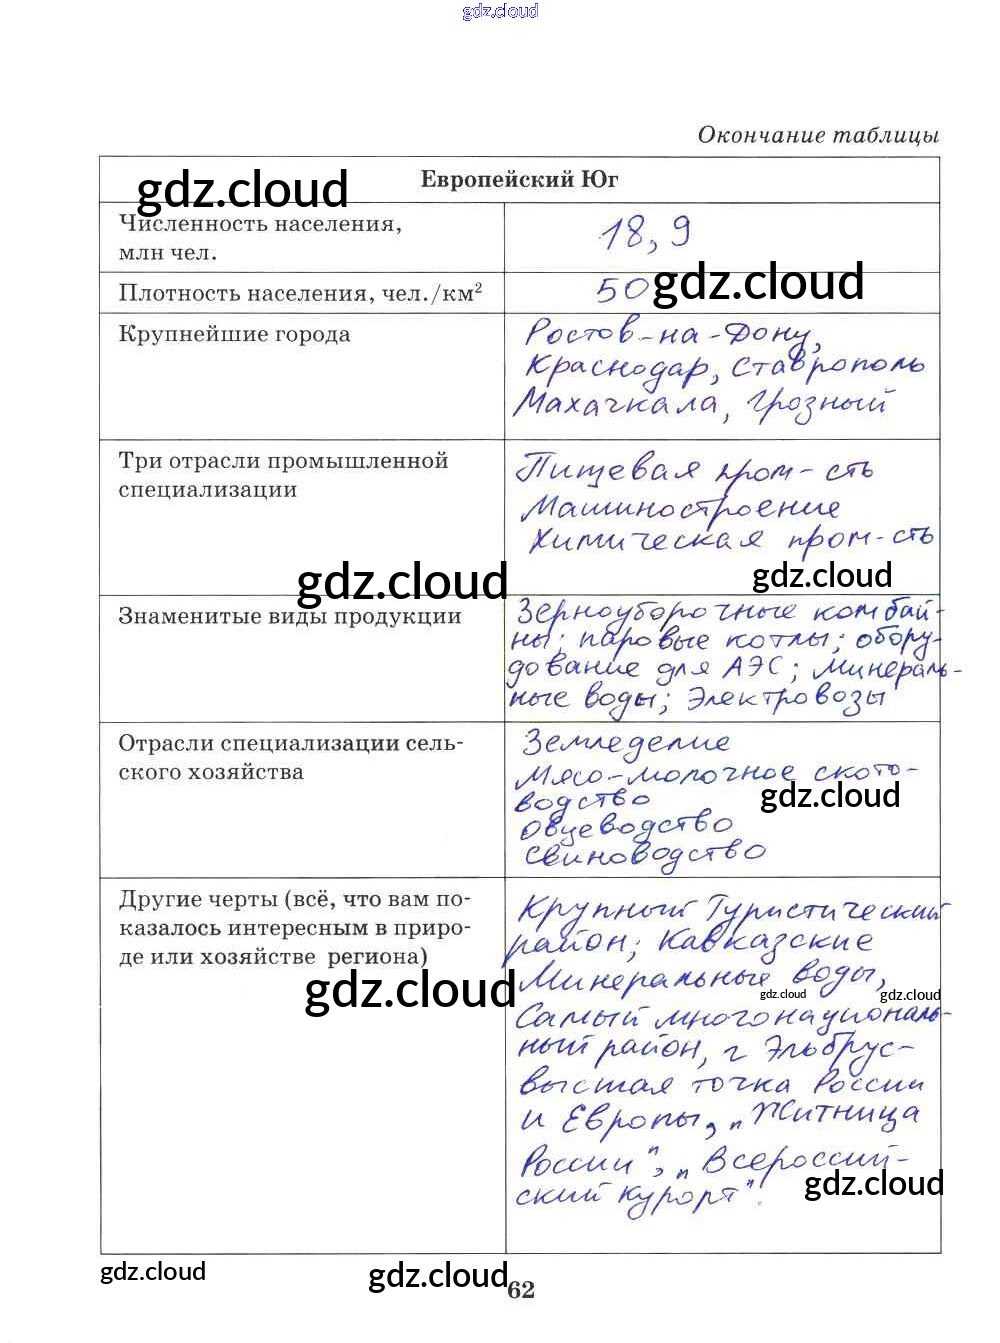 gdz.cloud
Окончание таблицы
gdz.cloud
Европейский Юг
Численность населения,
млн чел.
18,9
Плотность населения, чел./км²
50
gdz.cloud
Крупнейшие города
Ростов-на-Дону,
Краснодар, Ставрополь
Махачкала, Грозный
Три отрасли промышленной
специализации
Пищевая пром-сть
Машиностроение
Химическая пром-сть
gdz.cloud
gdz.cloud
Знаменитые виды продукции
Зерноуборочные комбай-
ны; паровые котлы; обору-
дование для АЭС; минераль-
ные воды; Электровозы
Отрасли специализации сель-
ского хозяйства
Земледелие
Мясо-молочное ското-
водство
Овцеводство
Свиноводство
gdz.cloud
Другие черты (всё, что вам по-
казалось интересным в приро-
де или хозяйстве региона)
gdz.cloud
Крупный Туристический
район; Кавказские
Минеральные воды,
gdz.cloud
gdz.cloud
Самый многонациональ-
ный район, г Эльбрус-
высшая точка России
и Европы, „Житница
России", „Всероссий-
ский курорт".
gdz.cloud
gdz.cloud
gdz.cloud
62